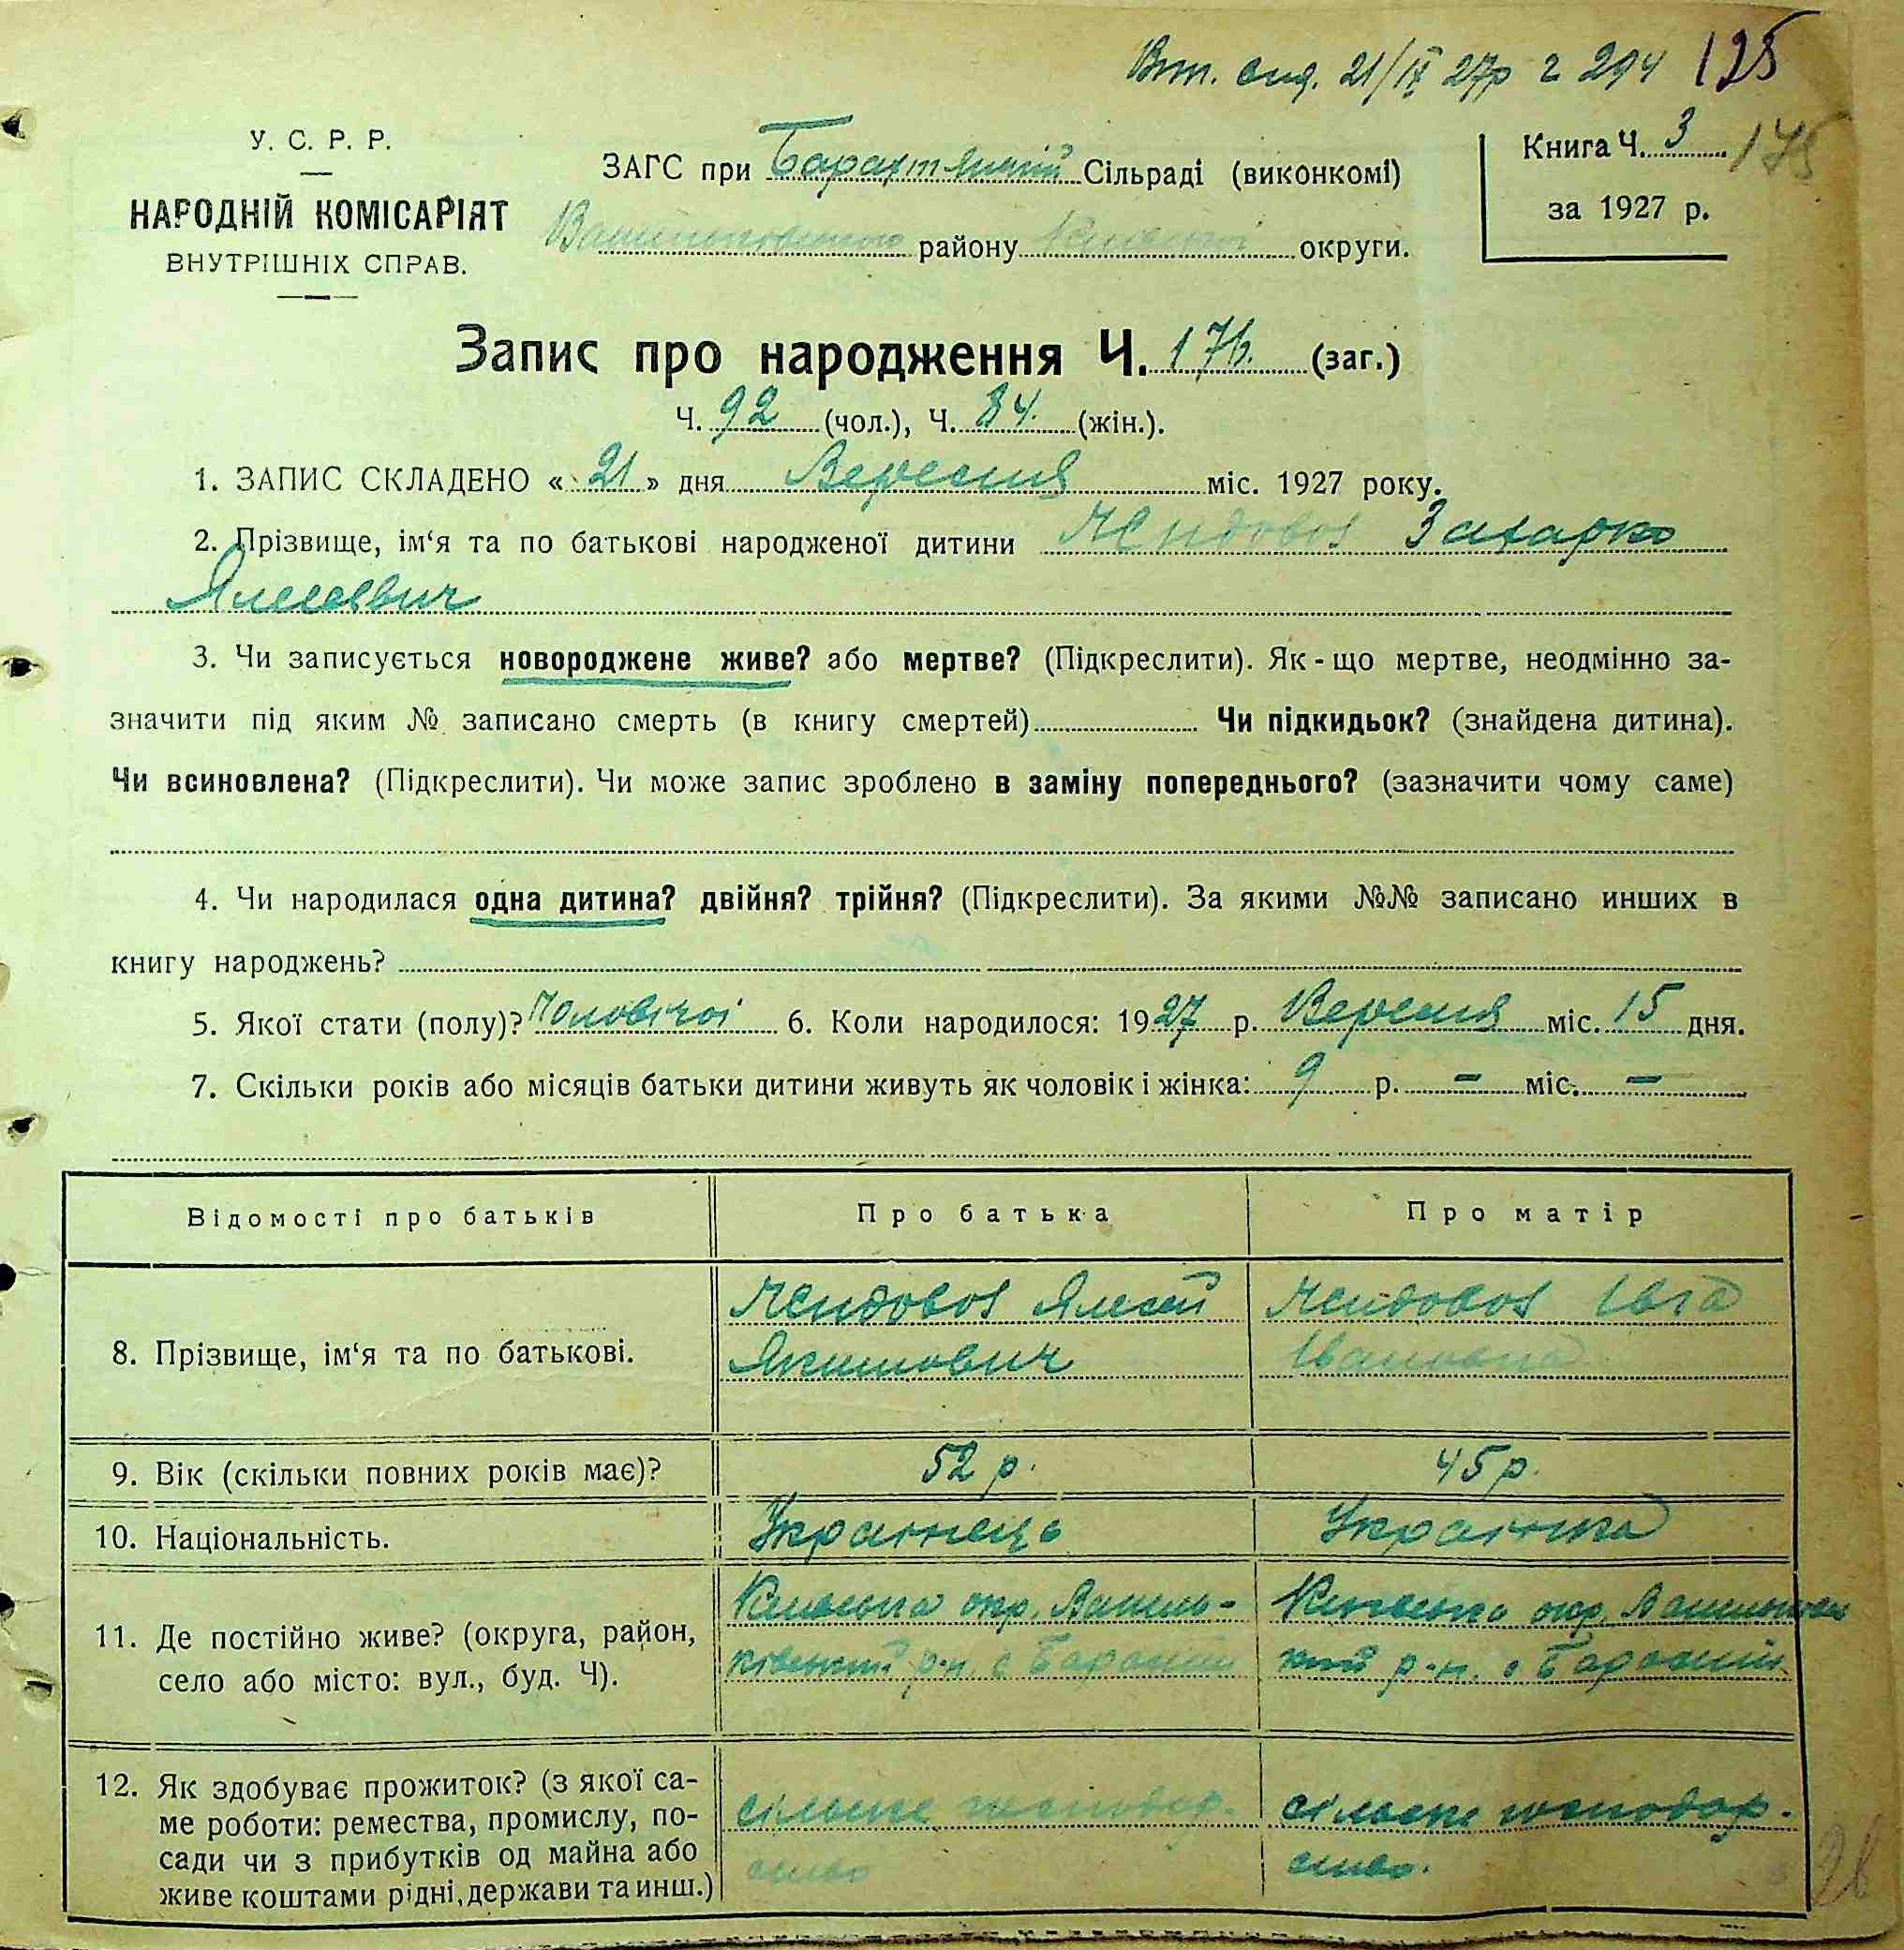 Вит. вид. 21/IX 27р г 294 125
У. С. Р. Р.
НАРОДНІЙ КОМІСАРІЯТ
ВНУТРІШНІХ СПРАВ.
ЗАГС при Барахтянській Сільраді (виконкомі)
Васильківського району Київської округи.
Книга Ч. 3 175
за 1927 р.
Запис про народження Ч. 176. (заг.)
Ч. 92 (чол.), Ч. 84. (жін.).
1. ЗАПИС СКЛАДЕНО « 21 » дня Вересня міс. 1927 року.
2. Прізвище, ім‘я та по батькові народженої дитини Захарко
Ялисеєвич
3. Чи записується новороджене живе? або мертве? (Підкреслити). Як-що мертве, неодмінно за-
значити під яким № записано смерть (в книгу смертей) Чи підкидьок? (знайдена дитина).
Чи всиновлена? (Підкреслити). Чи може запис зроблено в заміну попереднього? (зазначити чому саме)
4. Чи народилася одна дитина? двійня? трійня? (Підкреслити). За якими №№ записано инших в
книгу народжень?
5. Якої стати (полу)? Чоловічої 6. Коли народилося: 1927 р. Вересня міс. 15 дня.
7. Скільки років або місяців батьки дитини живуть як чоловік і жінка: 9 р. – міс. –
Відомості про батьків Про батька Про матір
8. Прізвище, ім‘я та по батькові.
Якимович
Івга
Івановна
9. Вік (скільки повних років має)? 52 р. 45 р.
10. Національність. Українець Українка
11. Де постійно живе? (округа, район,
село або місто: вул., буд. Ч).
Київська окр. Василь-
ківський р-н. с
Київська окр. Васильків
ский р-н. с
12. Як здобуває прожиток? (з якої са-
ме роботи: ремества, промислу, по-
сади чи з прибутків од майна або
живе коштами рідні, держави та инш.)
сільське господар.
ство
сільське господар.
ство.